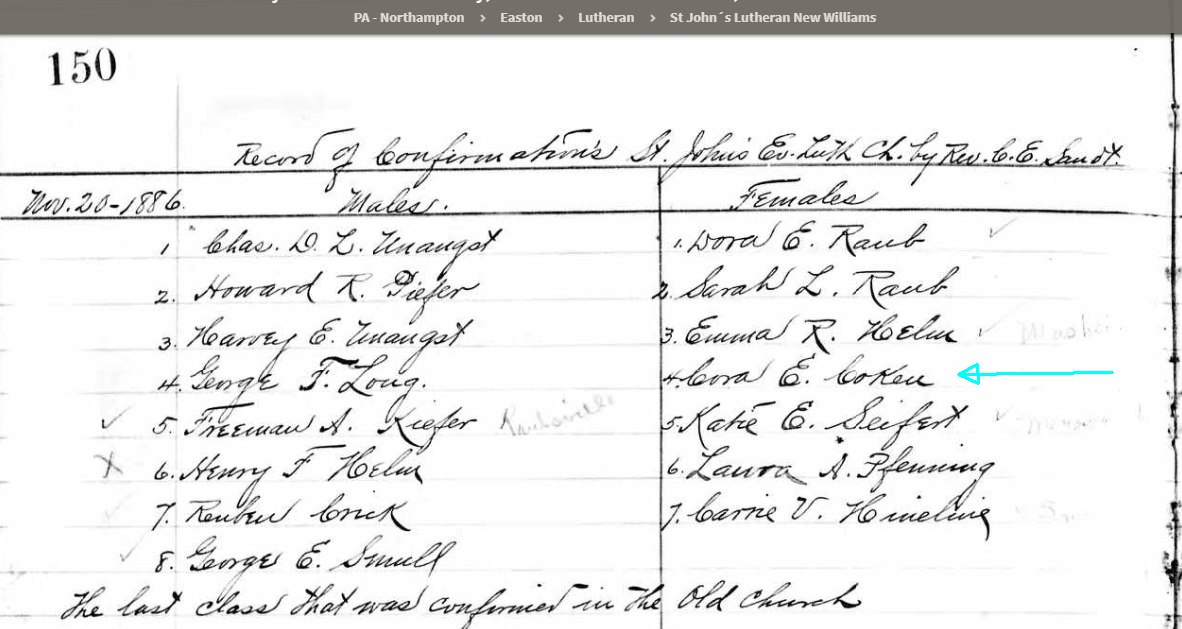 PA - Northampton > Easton > Lutheran > St John´s Lutheran New Williams
150
Record of Confirmation's St. John's Ev. Luth Ch. by Rev. C. E. Sandt.
Nov. 20-1886. Males. Females
1 Chas. D. L. Unangst 1. Dora E. Raub
2. Howard R. Piefer 2. Sarah L. Raub
3. Harvey E. Unangst 3. Emma R. Helm
4. George F. Long. 4. Cora E. Coken
5. Freeman A. Kiefer 5. Katie E. Seifert
6. Henry F Helm 6. Laura A. Pfenning
7. Reuben Crick 7. Carrie V. Hineline
8. George E. Smull
The last class that was confirmed in the Old Church